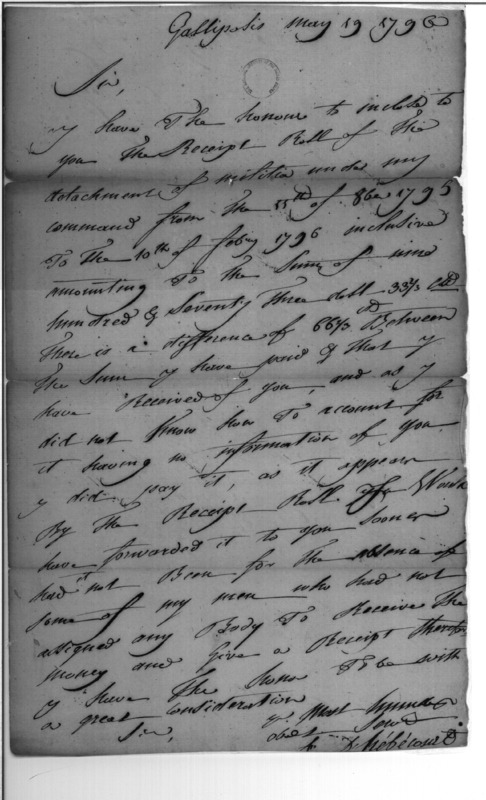 Gallipolis may 19 1796
Sir,
y have The honour to inclose to
you The Receipt Roll of The
detachment of militia under my
command from the 11th of 8ber 1795
To The 10th of feby 1796 inclusive
amounting To the Sum of nine
hundred & Seventy Three doll. 33⅓
There is a difference of 66⅔ Between
The Sum y have paid & that y
have Received of you, and as y
did not Know how To account for
it having no information of you.
y did pay it, as it appears
By The Receipt Roll. y Would
have forwarded it to you Sooner
had it not Been for the absence of
some of my men who had not
assigned any Body To Receive The
money and Give a Receipt therefor
y have The honor To be with
a great consideration
Sir, yr Most humble
obet Serv